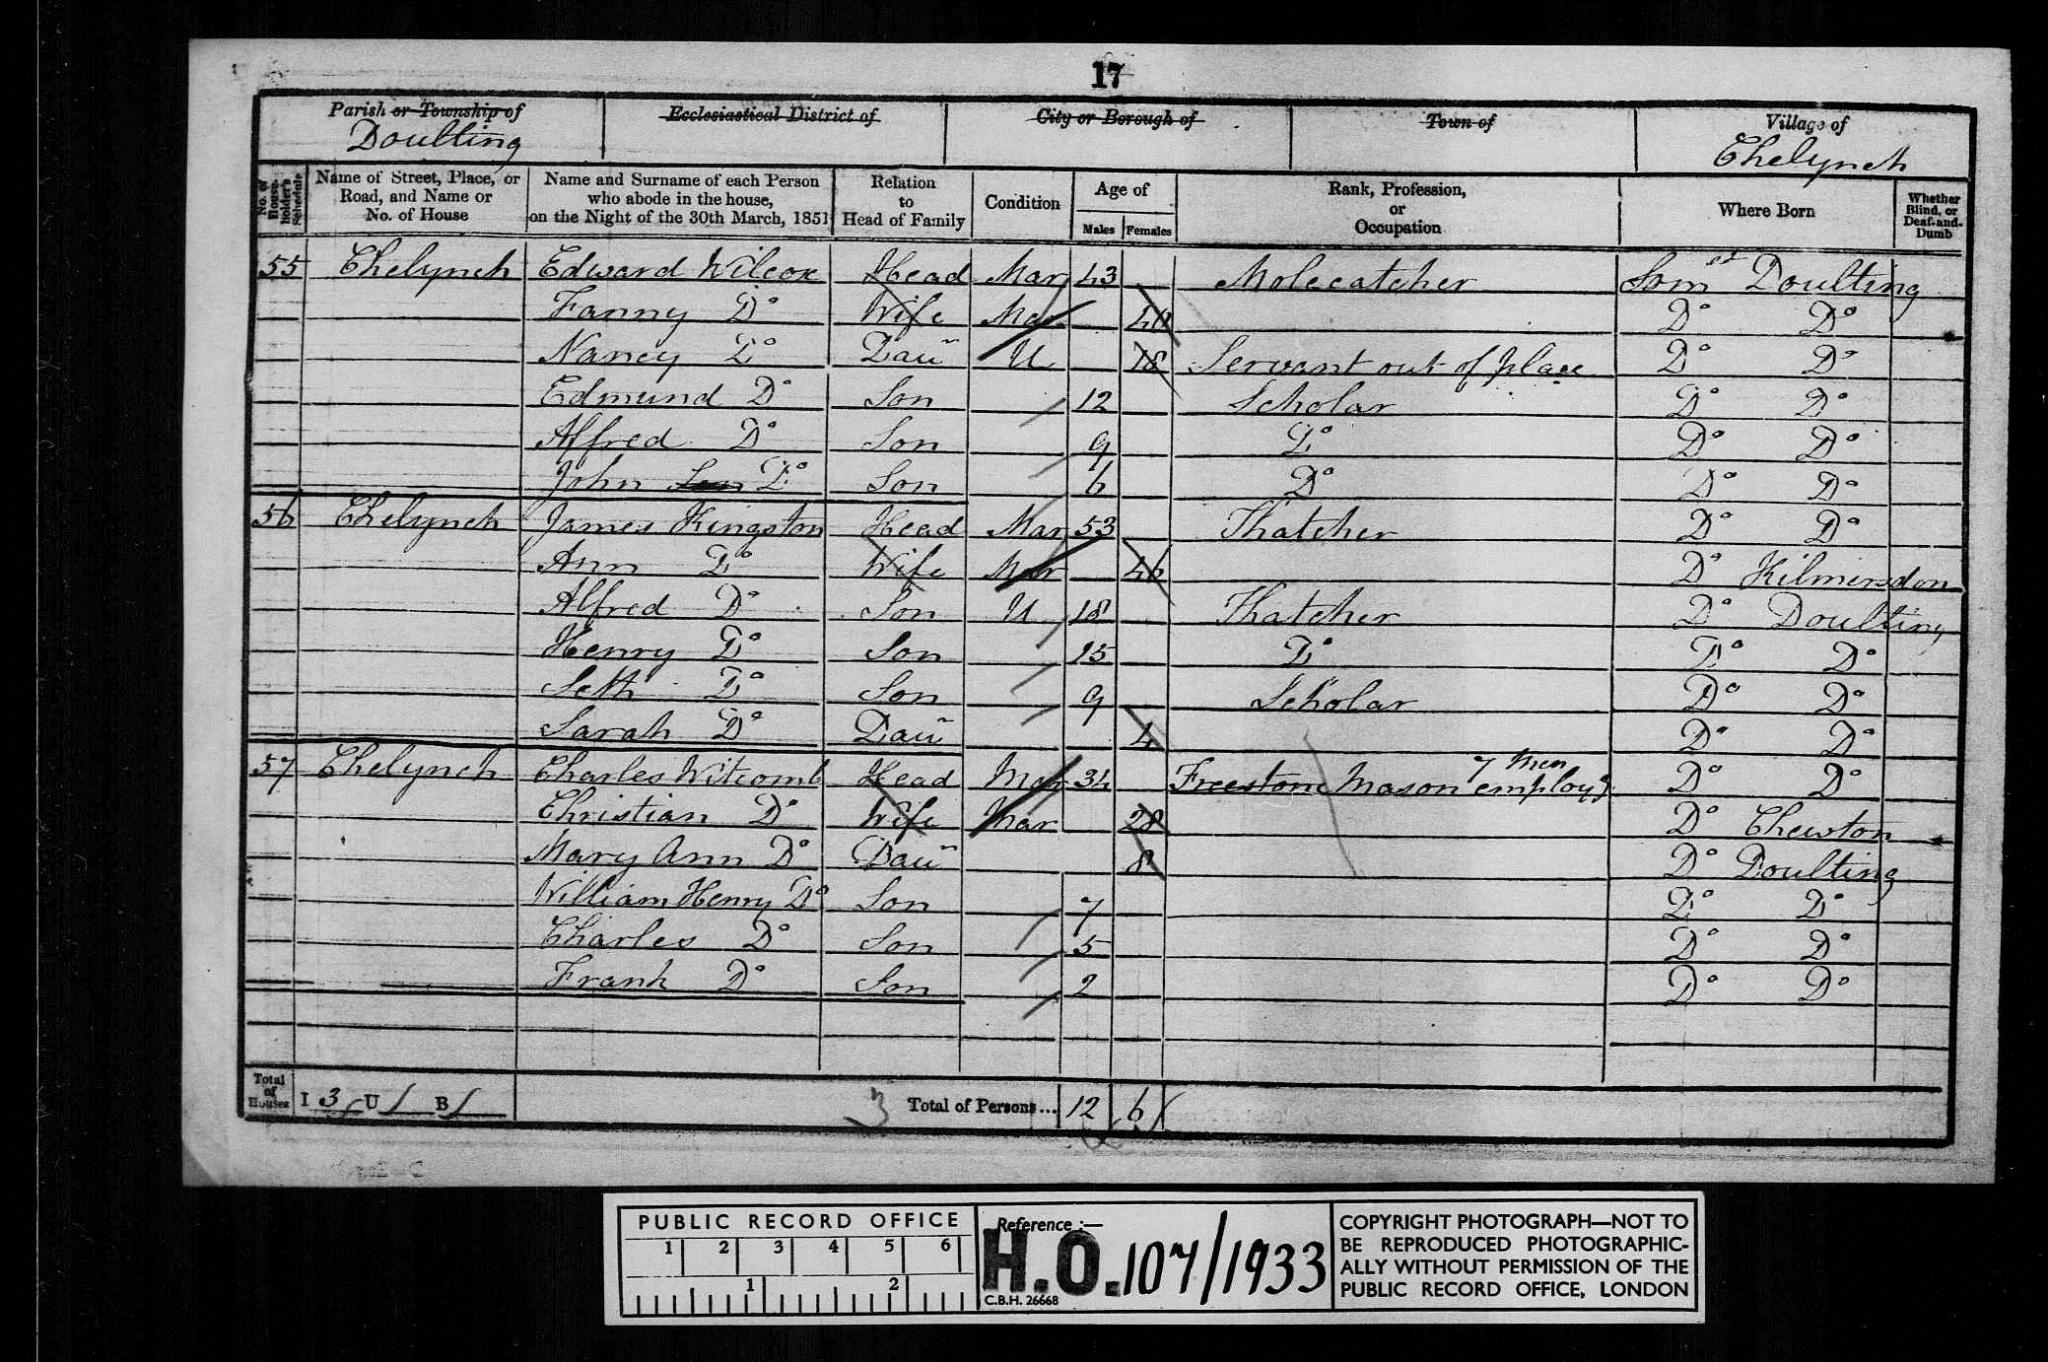 17
Parish or Township of Doulting
Ecclesiastical District of
City or Borough of
Town of
Village of Chelynch
No. of House-holder's Schedule
Name of Street, Place, or Road, and Name or No. of House
Name and Surname of each Person who abode in the house, on the Night of the 30th March, 1851
Relation to Head of Family
Condition
Age of Males Females
Rank, Profession, or Occupation
Where Born
Whether Blind, or Deaf-and-Dumb
55 Chelynch Edward Wilcox Head Mar 43 Molecatcher Somst Doulting
Fanny Do Wife Mar 40 Do Do
Nancy Do Dau U 18 Servant out of place Do Do
Edmund Do Son 12 Scholar Do Do
Alfred Do Son 9 Do Do Do
John Son Do Son 6 Do Do Do
56 Chelynch James Kingston Head Mar 53 Thatcher Do Do
Ann Do Wife Mar 46 Do Kilmersdon
Alfred Do Son U 18 Thatcher Do Doulting
Henry Do Son 15 Do Do Do
Seth Do Son 9 Scholar Do Do
Sarah Do Dau 4 Do Do
57 Chelynch Charles Witcomb Head Mar 34 Freestone Mason 7 men employg Do Do
Christian Do Wife Mar 28 Do Chewton
Mary Ann Do Dau 8 Do Doulting
William Henry Do Son 7 Do Do
Charles Do Son 5 Do Do
Frank Do Son 2 Do Do
Total of Houses I 3 U B
3 Total of Persons... 12 6
PUBLIC RECORD OFFICE
1 2 3 4 5 6
1 2
Reference :—
H.O. 107/1933
C.B.H. 26668
COPYRIGHT PHOTOGRAPH—NOT TO
BE REPRODUCED PHOTOGRAPHIC-
ALLY WITHOUT PERMISSION OF THE
PUBLIC RECORD OFFICE, LONDON